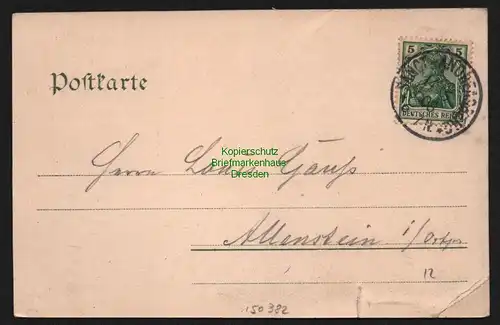 Postkarte
5 5
DEUTSCHES REICH
SANCT ANDREASBERG
Kopierschutz
Briefmarkenhaus
Dresden
Herrn Louis Gauss
Allenstein i/Ostpr
12
150382